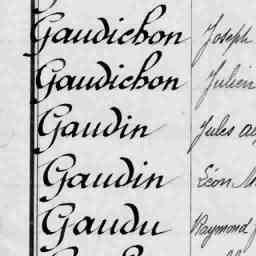 Gaudichon Joseph
Gaudichon Julien
Gaudin Jules
Gaudin Léon
Gaudu Raymond